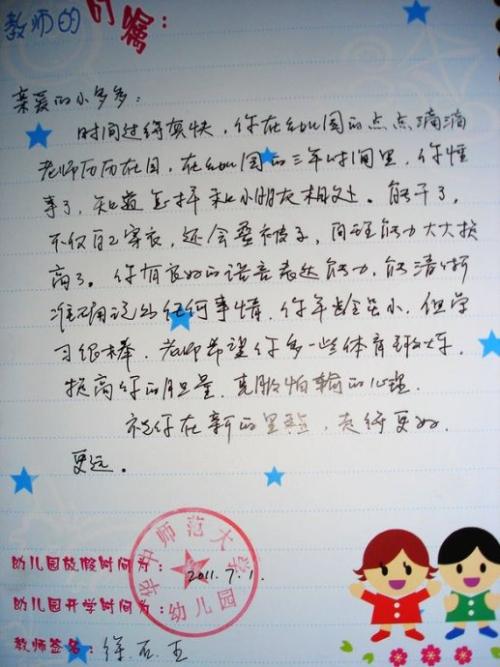 教师的叮嘱：
亲爱的小多多：
时间过得真快，你在幼儿园的点点滴滴
老师历历在目，在幼儿园的三年时间里，你懂
事了，知道怎样和小朋友相处。能干了，
不仅自己穿衣，还会叠被子，自理能力大大提
高了。你有良好的语言表达能力，能清晰
准确说出任何事情，你年龄虽小，但学
习很棒，老师希望你多一些体育锻炼，
提高你的胆量，克服怕输的心理。
祝你在新的里程，走得更好
更远。
华中师范大学
幼儿园
幼儿园放假时间为：2011.7.1.
幼儿园开学时间为：
教师签名：徐